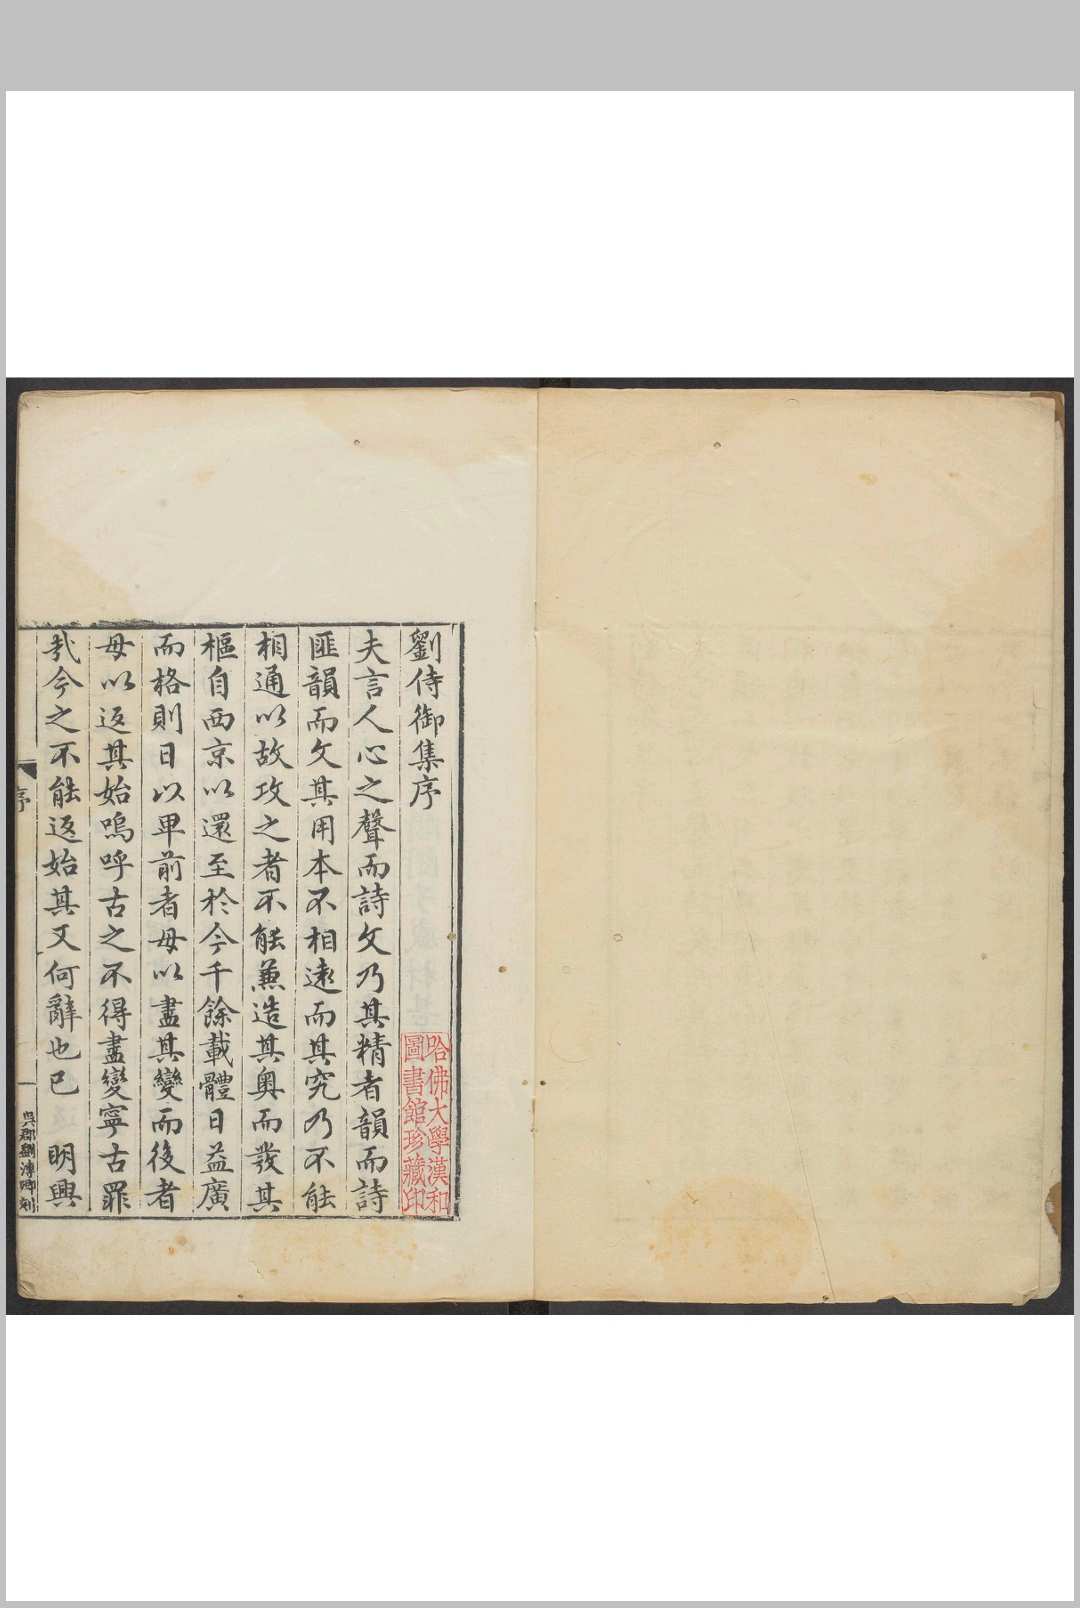 劉侍御集序
夫言人心之聲而詩文乃其精者韻而詩
匪韻而文其用本不相遠而其究乃不能
相通以故攻之者不能兼造其奧而發其
樞自西京以還至於今千餘載體日益廣
而格則日以卑前者毋以盡其變而後者
毋以返其始嗚呼古之不得盡變寧古罪
哉今之不能返始其又何辭也已 明興
序
一
吳郡劉溥卿刻
哈佛大學漢和
圖書館珍藏印